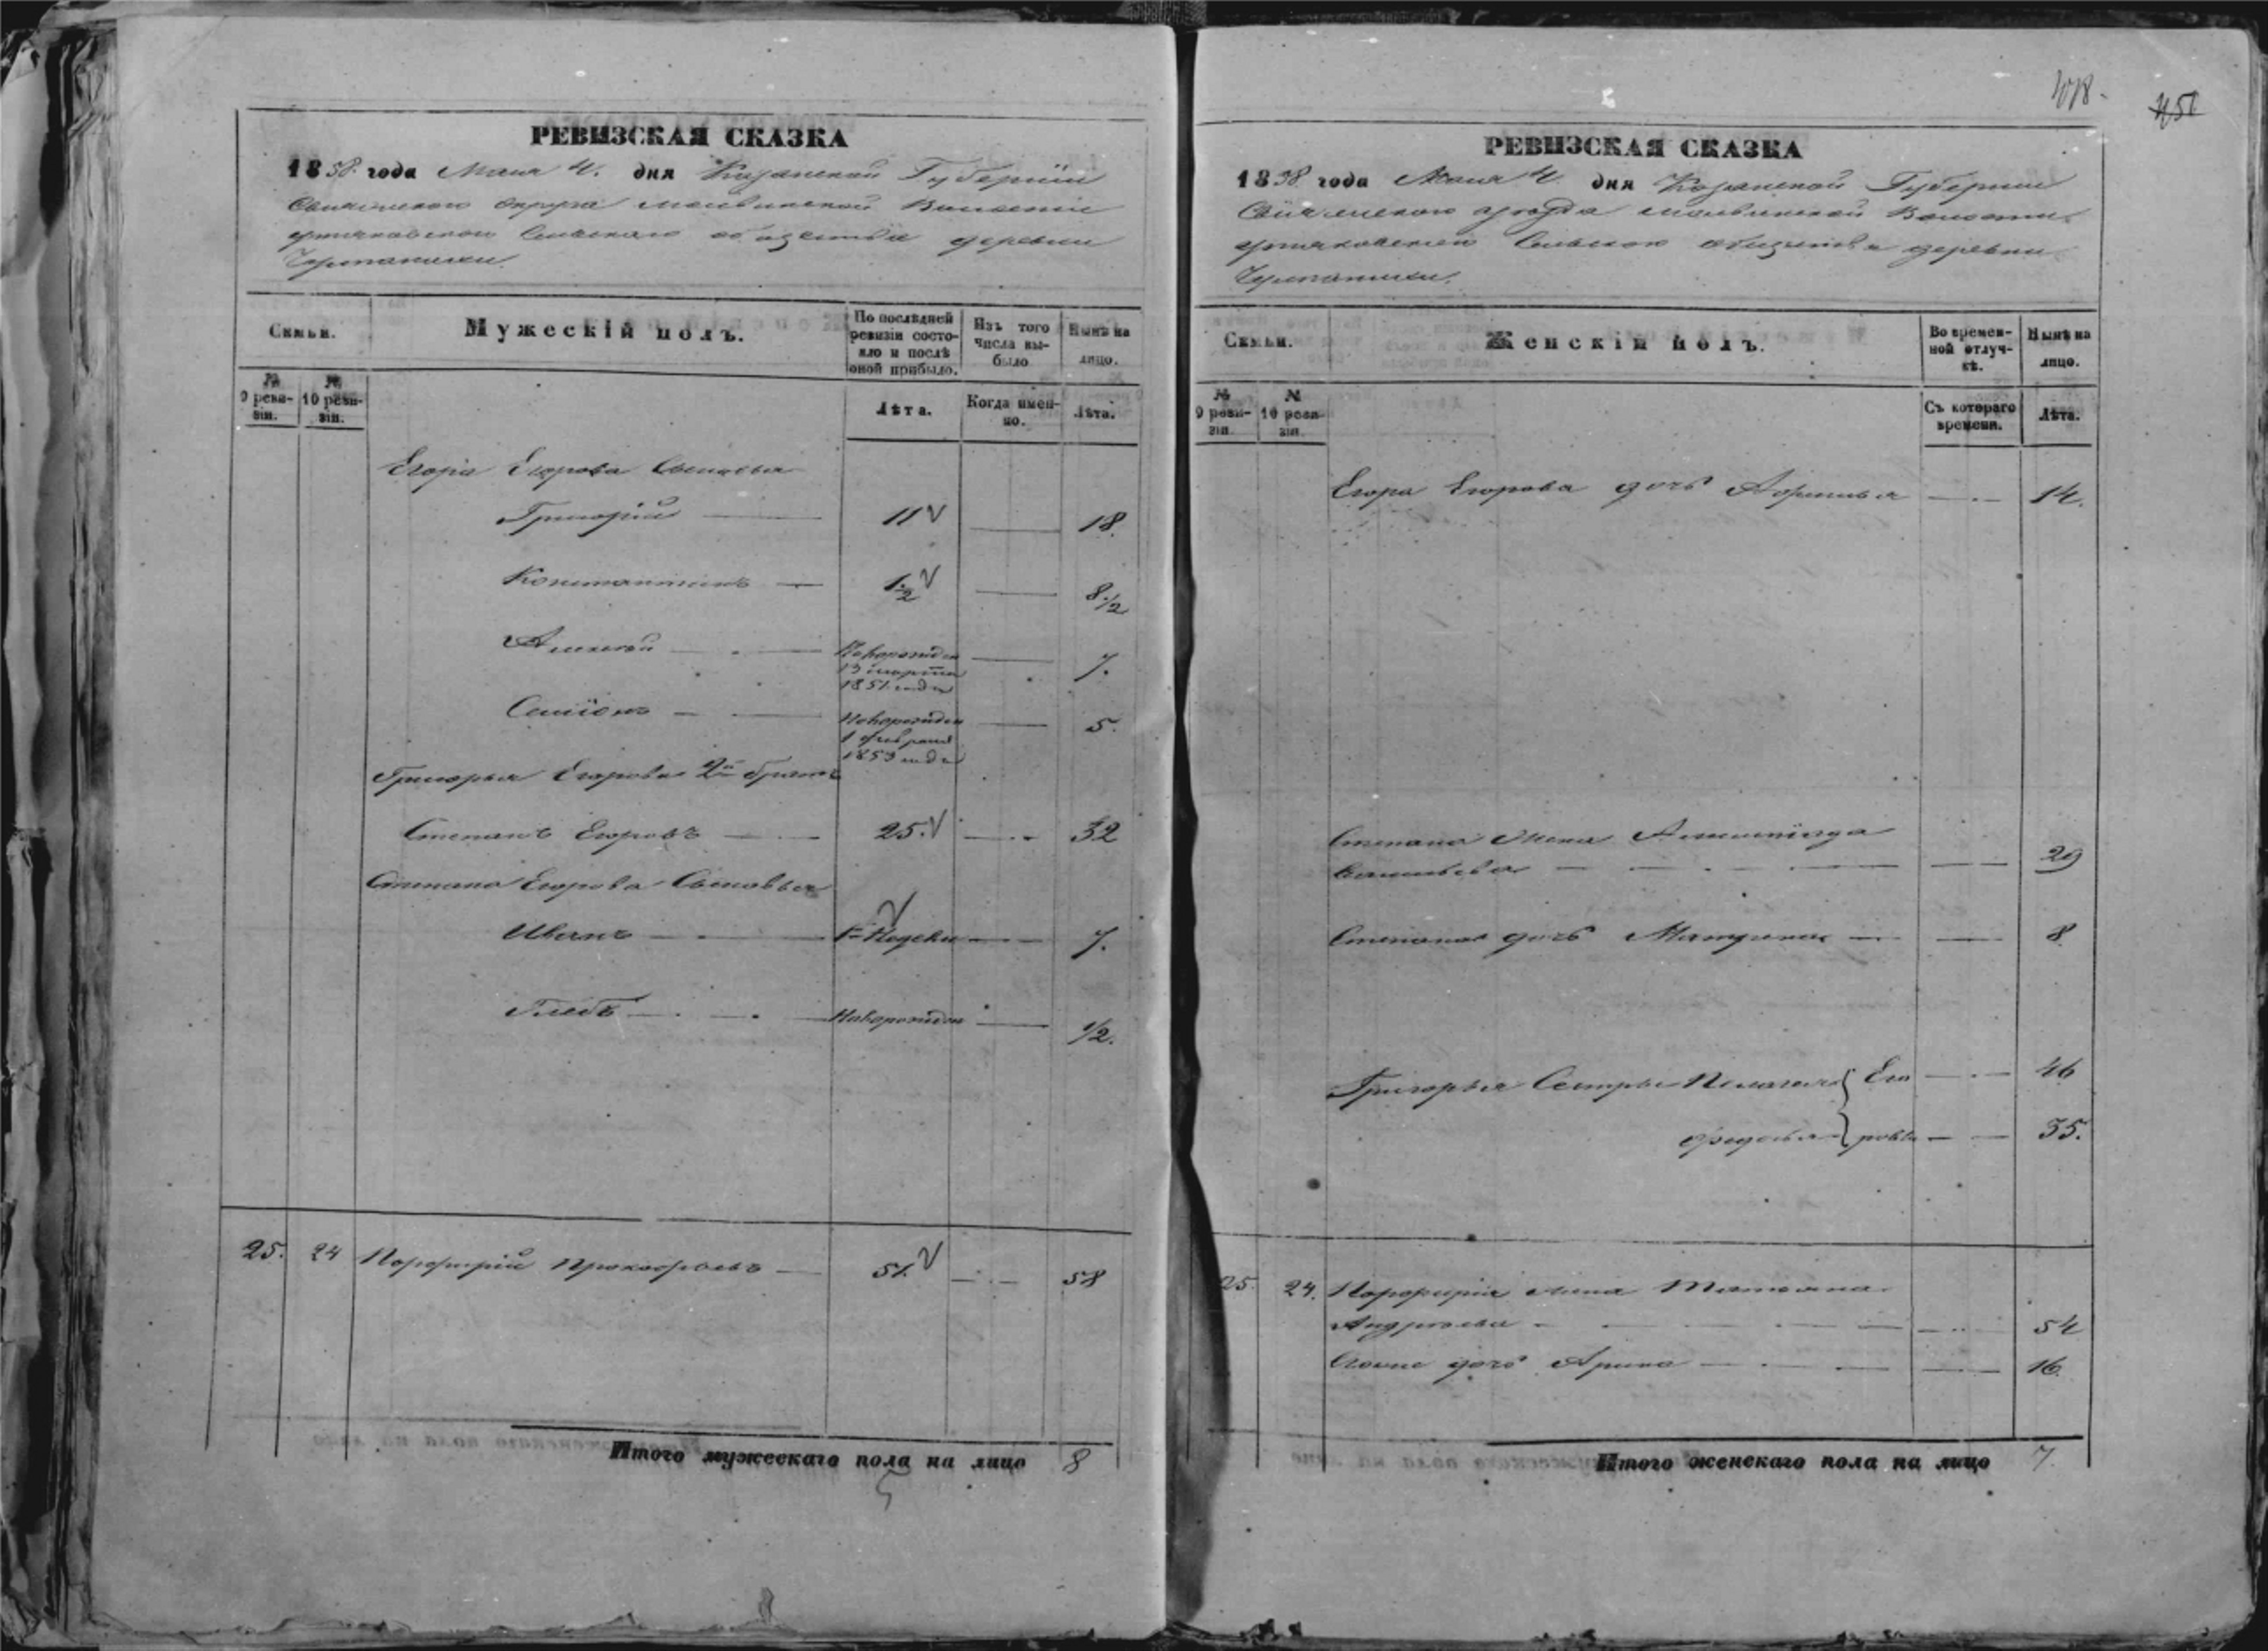 408.
451
РЕВИЗСКАЯ СКАЗКА
1858 года Мая 4. дня Казанской Губерніи
Свіяжскаго округа Молвинской Волости
Сельскаго общества деревни
РЕВИЗСКАЯ СКАЗКА
1858 года Мая 4 дня Казанской Губерніи
Свіяжскаго округа Молвинской Волости
Сельскаго общества деревни
Семьи.
Мужескій полъ.
По последней ревизіи состояло и послѣ оной прибыло.
Изъ того числа выбыло
Нынѣ на лицо.
№ 9 ревизіи.
№ 10 ревизіи.
Лѣта.
Когда именно.
Лѣта.
Егора Егорова Сыновья
Григорій — 11 — 18.
Константинъ — 1/2 — 8 1/2
Алексей — Новорожден 13 марта 1851 года — 7.
Семіонъ — Новорожден 1 февраля 1853 года — 5.
Григорья Егорова 2й братъ
Степанъ Егоровъ — 25. — 32
Степана Егорова Сыновья
Иванъ — 1 Недели — 7.
Глебъ — Новорожден — 1/2.
25. 24 Порфирій Прокофьевъ — 51. — 58
Итого мужескаго пола на лицо 8
5
Семьи.
Женскій полъ.
Во временной отлучкѣ.
Нынѣ на лицо.
№ 9 ревизіи
№ 10 ревизіи
Съ котораго времени.
Лѣта.
Егора Егорова дочь — 14.
Степана Жена
Васильева — 29
Степана дочь Матрена — 8
Григорья Сестры Пелагея Его — 46
Федосья ровы — 35.
25. 24. Порфирія жена Татьяна
Андреева — 54
дочь Арина — 16
Итого женскаго пола на лицо 7